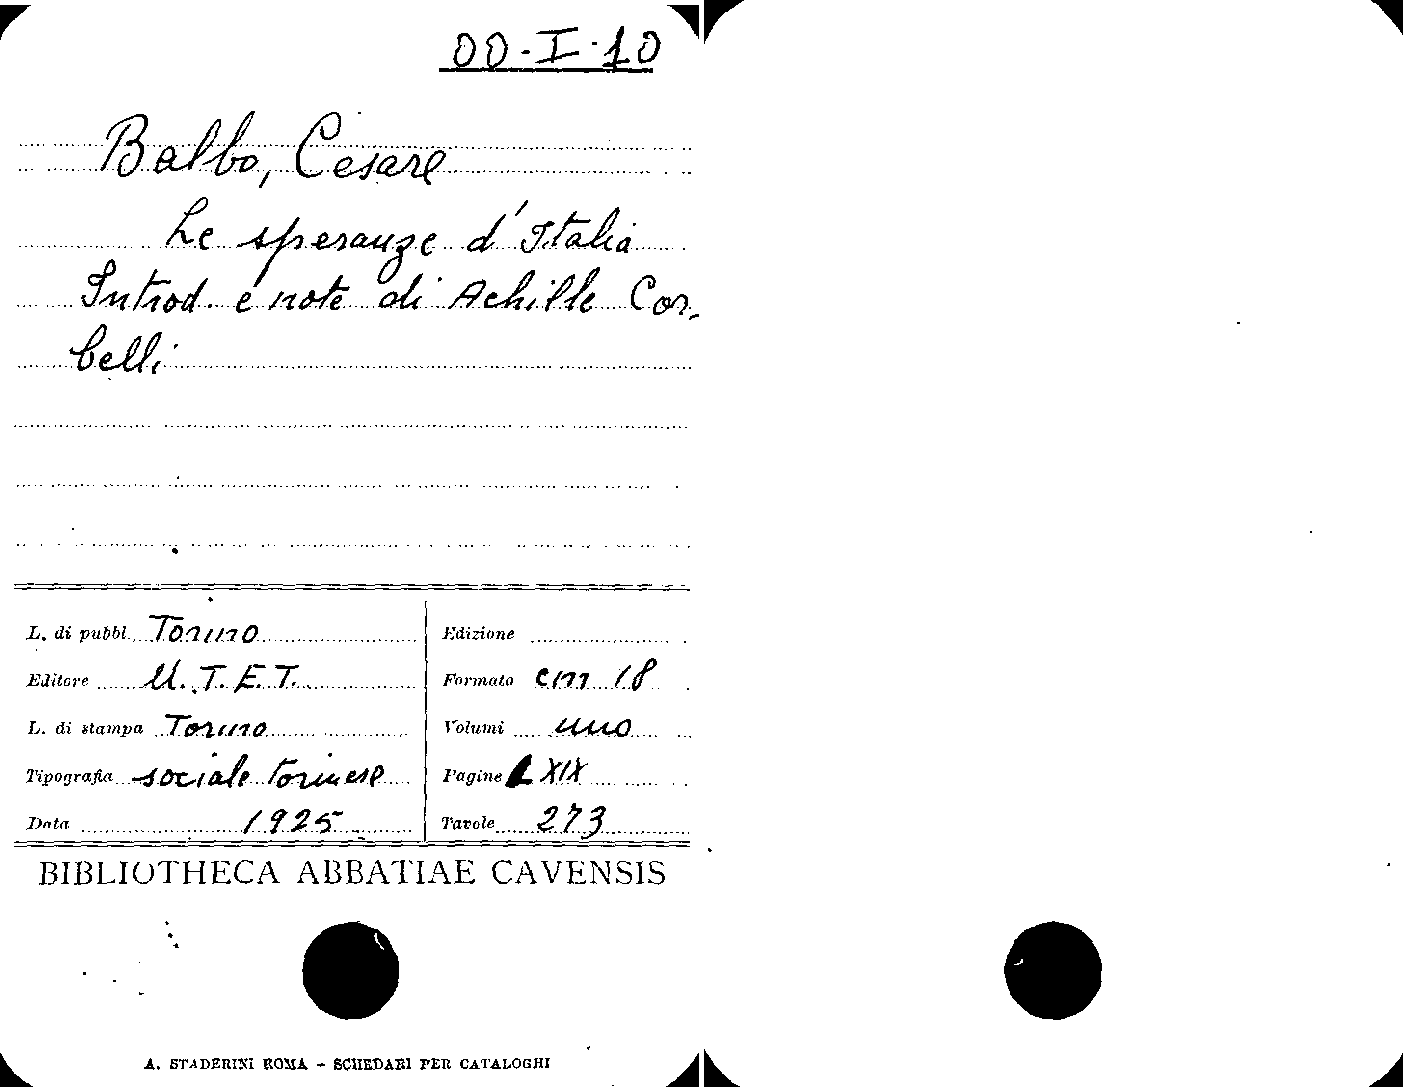 00-I-10
Balbo, Cesare
Le speranze d'Italia
Introd. e note di Achille Cor-
belli
L. di pubbl. Torino
Editore U.T.E.T.
L. di stampa Torino
Tipografia sociale torinese
Data 1925
Edizione
Formato cm 18
Volumi uno
Pagine LXIX
Tavole 273
BIBLIOTHECA ABBATIAE CAVENSIS
A. STADERINI ROMA - SCHEDARI PER CATALOGHI